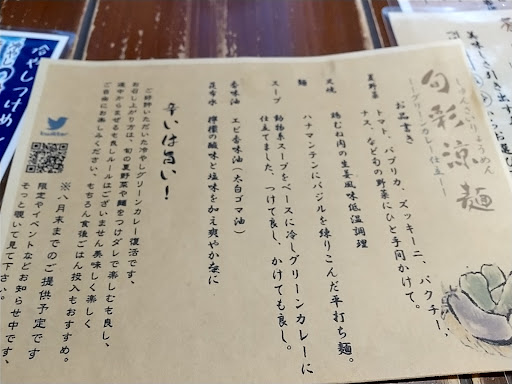 旬彩涼麺
しゅんさいりょうめん
―グリーンカレー仕立―
お品書き
夏野菜
トマト、パプリカ、ズッキーニ、パクチー、
ナス、など旬の野菜にひと手間かけて。
鶏むね肉の生姜風味低温調理
麺
ハナマンテンにバジルを練りこんだ平打ち麺。
スープ
動物系スープをベースに冷しグリーンカレーに
仕立てました。つけて良し、かけても良し。
香味油
エビ香味油(太白ゴマ油)
昆布水
檸檬の酸味と塩味を加え爽やかな
辛いは旨い!
ご好評いただいた冷やしグリーンカレー復活です。
お召し上がり方は、旬の夏野菜や麺をつけダレで楽しむも良し、
途中からまぜるも良しルールはございません美味しく楽しく
ご自由にお楽しみください、もちろん食後ごはん投入もおすすめ。
※八月末までのご提供予定です
限定やイベントなどお知らせ中です、
そっと覗いて見て下さい。
twitter
冷やしつけめん
美味しさ引き出す